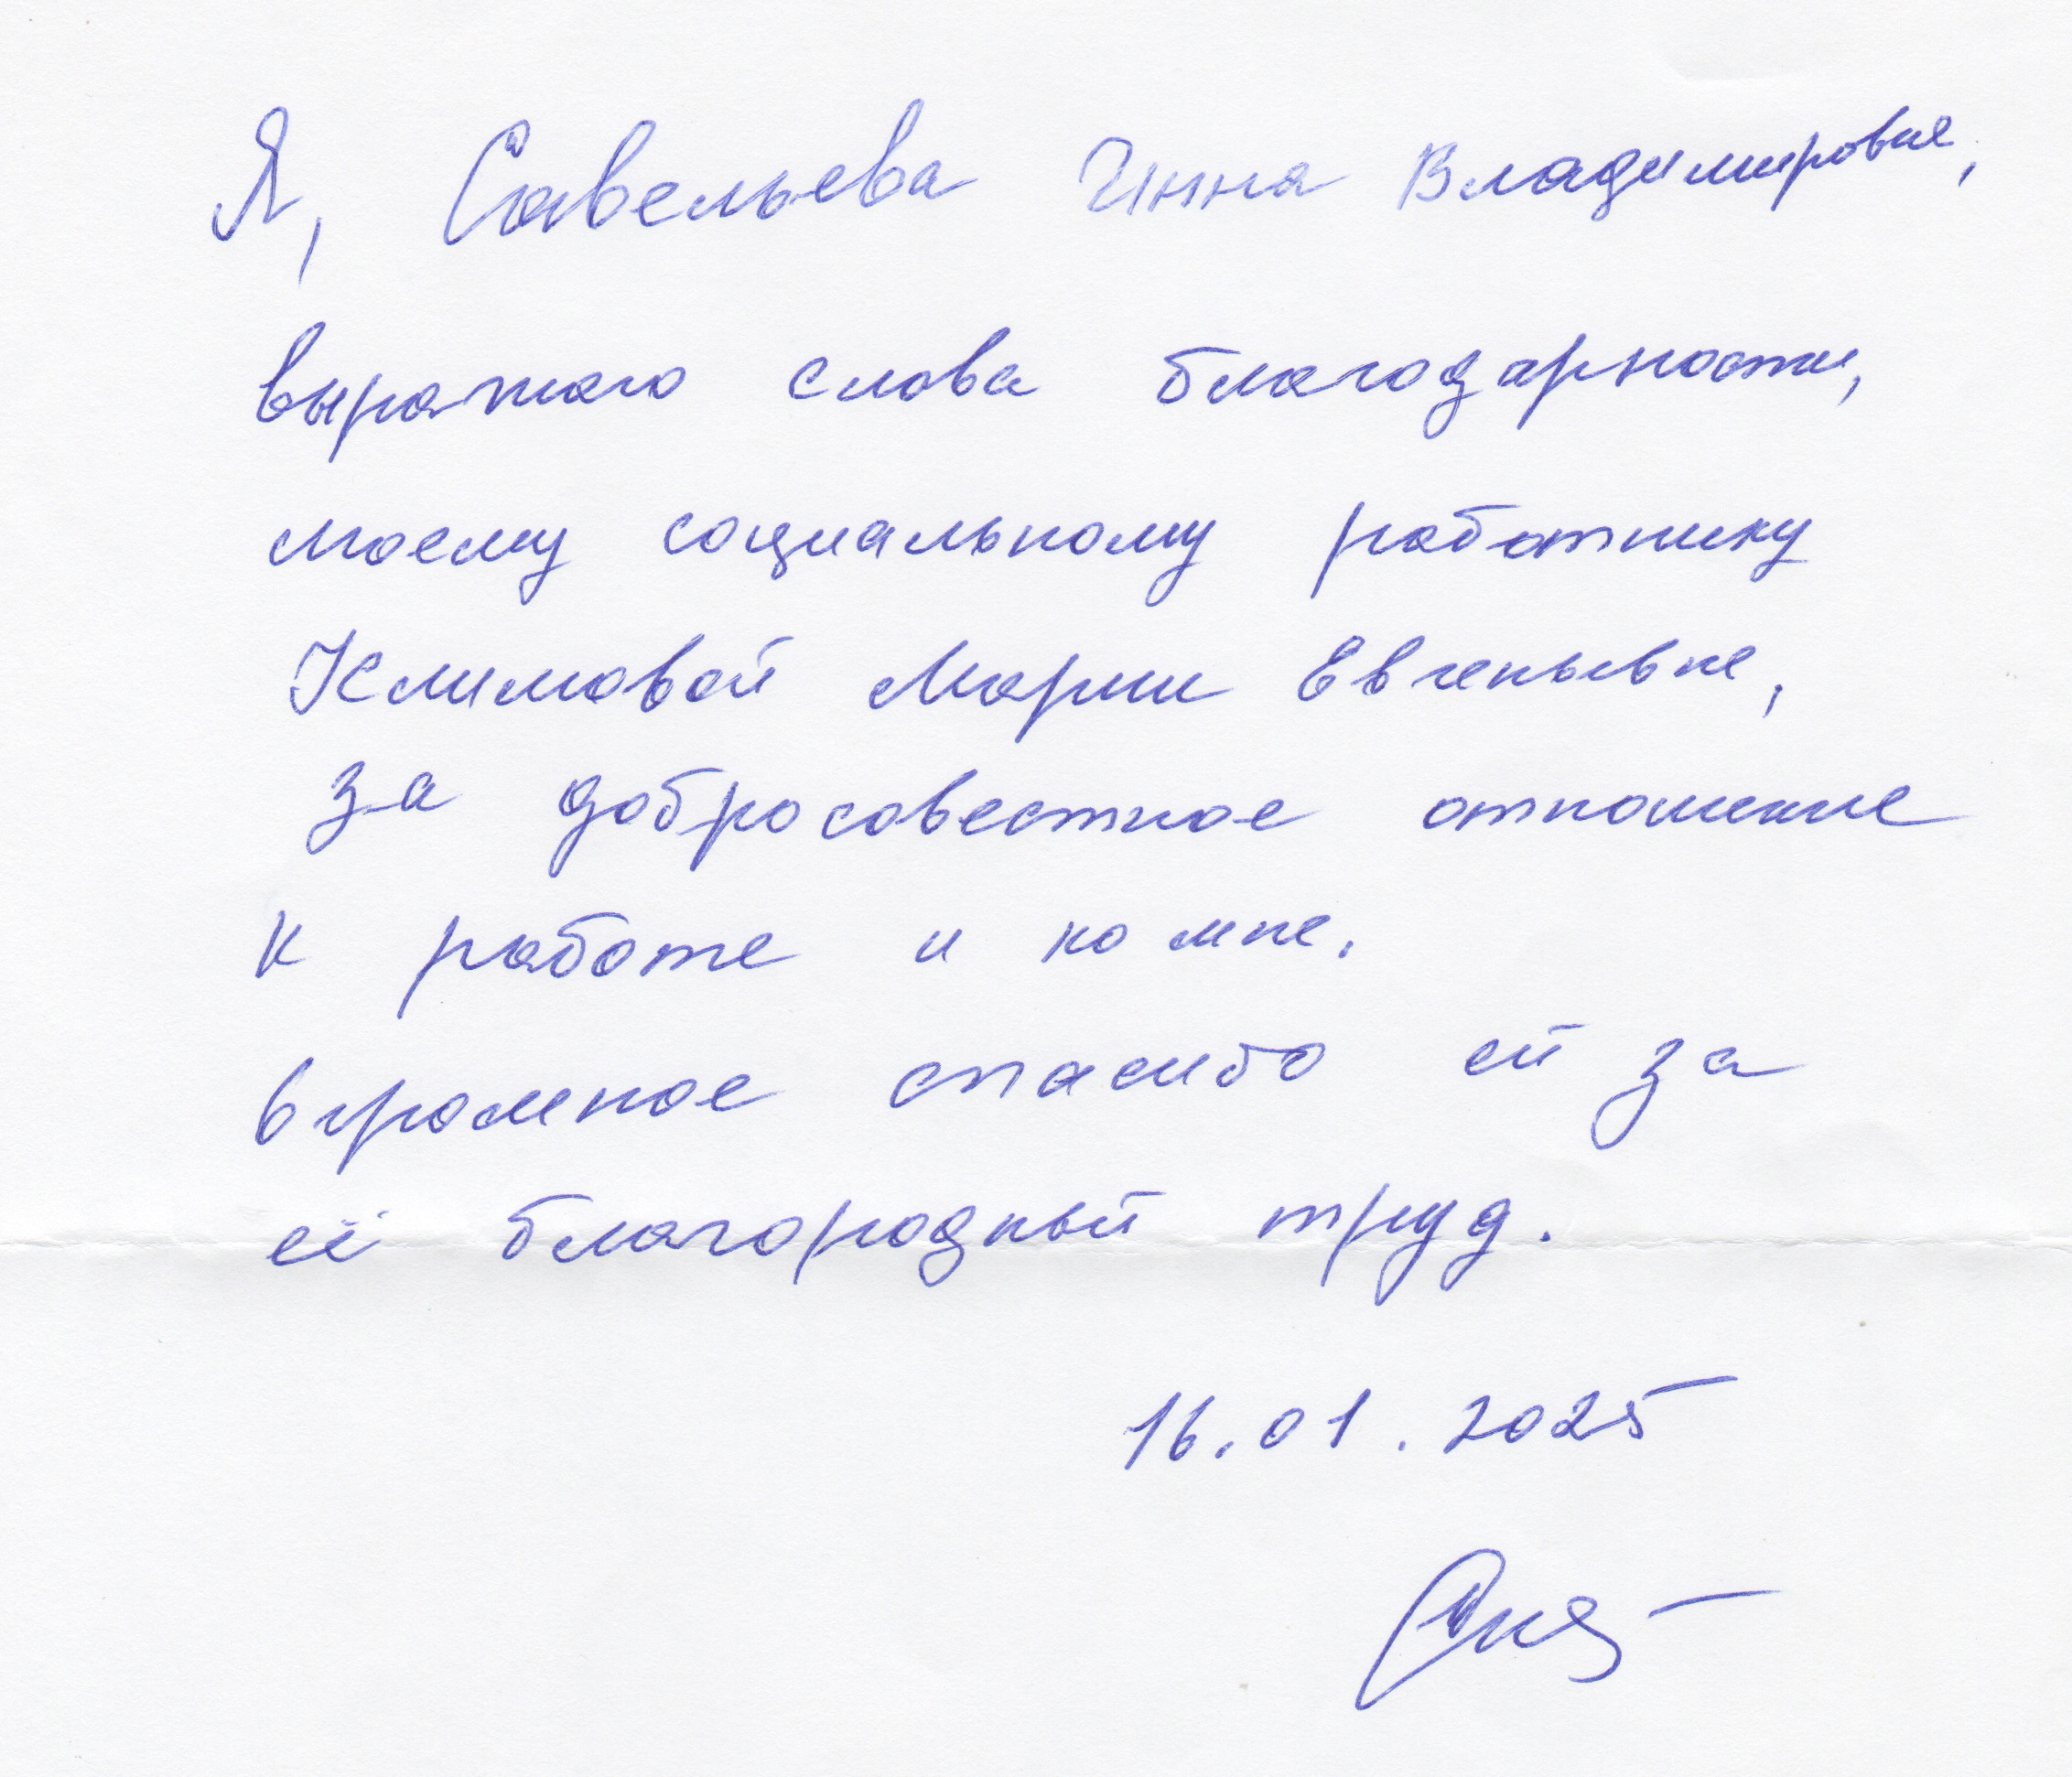 Я, Савельева Инна Владимировна,
выражаю слова благодарности,
моему социальному работнику
Климовой Марии Евгеньевне,
за добросовестное отношение
к работе и ко мне.
Огромное спасибо ей за
её благородный труд.
16.01.2025